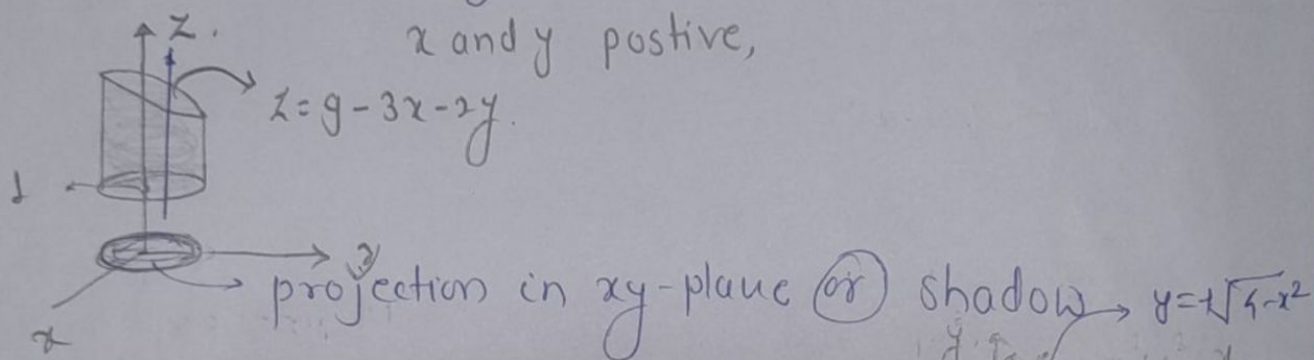 z.
x and y postive,
z = 9 - 3x - 2y.
1
y
projection in xy-plane (or) shadow → y = ±√4-x²
x